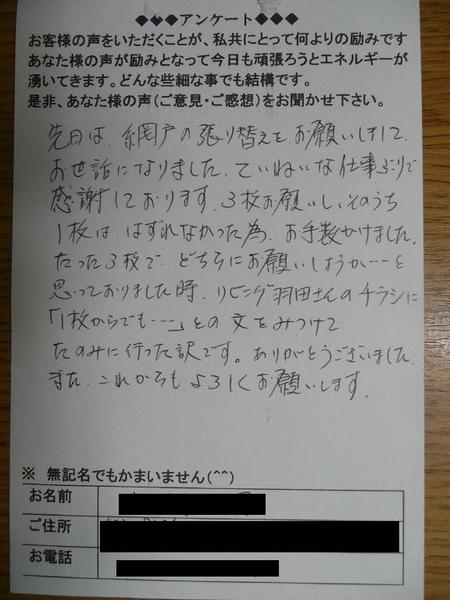 ◆◆◆アンケート◆◆◆
お客様の声をいただくことが、私共にとって何よりの励みです
あなた様の声が励みとなって今日も頑張ろうとエネルギーが
湧いてきます。どんな些細な事でも結構です。
是非、あなた様の声(ご意見・ご感想)をお聞かせ下さい。
先日は、網戸の張り替えをお願いしまして、
お世話になりました。ていねいな仕事ぶりで
感謝しております。3枚お願いし、そのうち
1枚は、はずれなかった為、お手数かけました。
たった3枚で、どちらにお願いしようか…と
思っておりました時、リビング羽田さんのチラシに
「1枚からでも…」との文をみつけて
たのみに行った訳です。ありがとうございました。
また、これからもよろしくお願いします。
※ 無記名でもかまいません(^^)
お名前
ご住所
お電話